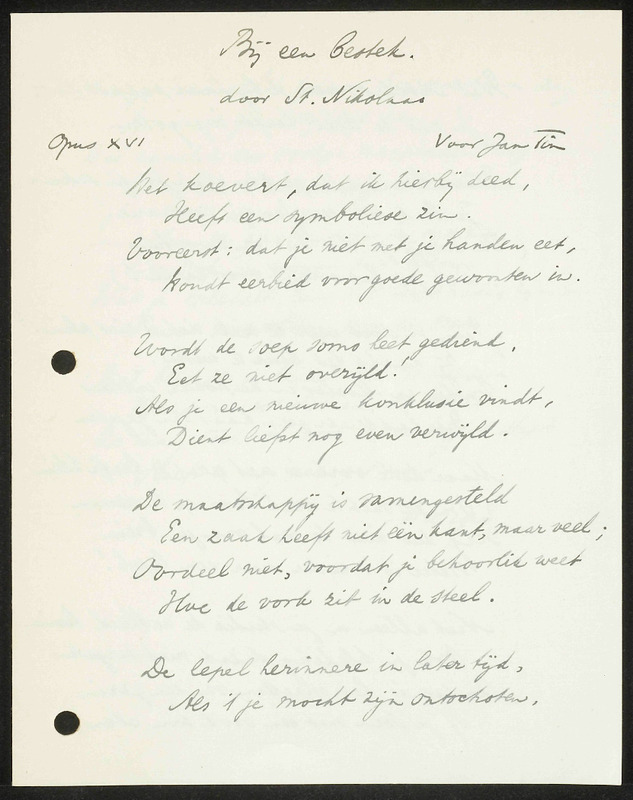 Bij een bestek.
door St. Nikolaas
Opus XVI
Voor Jan Tin
Het koevert, dat ik hierbij deed,
Heeft een symboliese zin.
Vooreerst: dat je niet met je handen eet,
houdt eerbied voor goede gewoonten in.
Wordt de soep soms heet gediend,
Eet ze niet overijld!
Als je een nieuwe konklusie vindt,
Dient liefst nog even verwijld.
De maatschappij is samengesteld
Een zaak heeft niet één kant, maar veel;
Oordeel niet, voordat je behoorlik weet
Hoe de vork zit in de steel.
De lepel herinnere in later tijd,
Als 't je mocht zijn ontschoten,